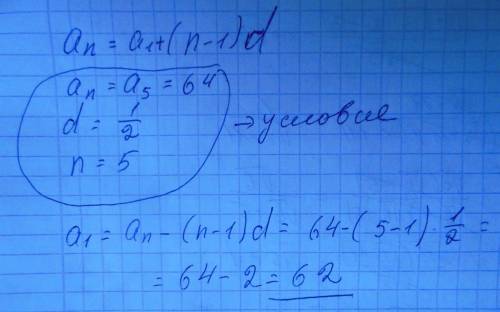 an = a1+(n-1)d
an = a5 = 64
d = 1/2
n = 5
→ условие
a1 = an - (n-1)d = 64-(5-1)·1/2 =
= 64-2 = 62